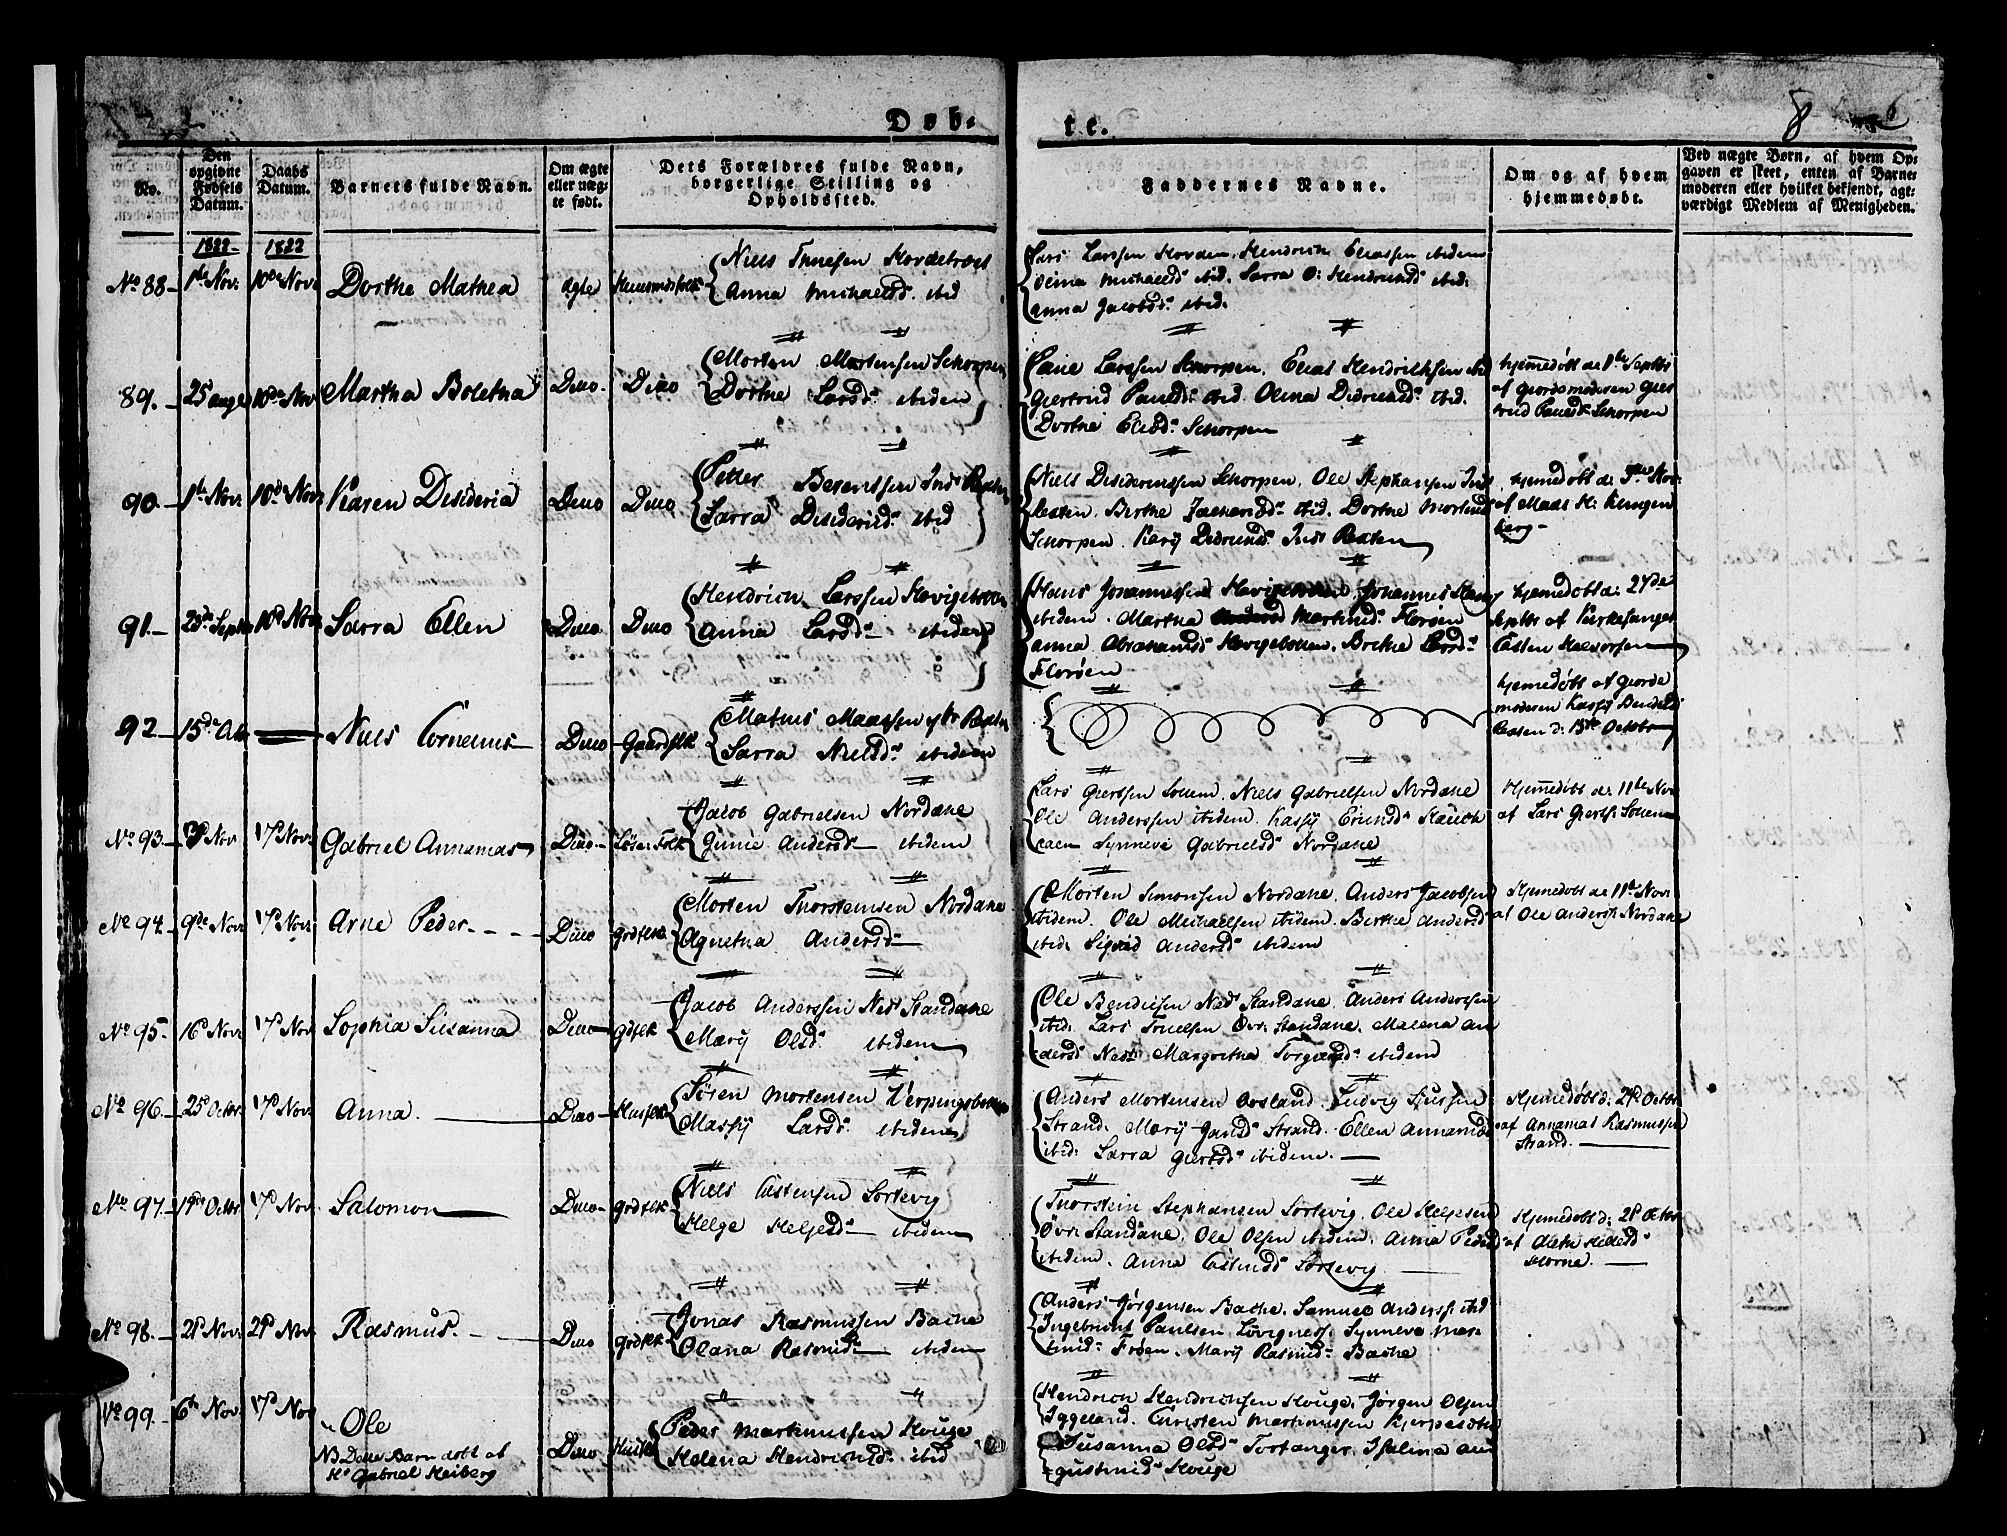 Døb-
te.
8
6
No.
Den opgivne Fødsels Datum.
Daabs Datum.
Barnets fulde Navn.
Om ægte eller uæg- te født.
Dets Forældres fulde Navn, borgerlige Stilling og Opholdssted.
Faddernes Navne.
Om og af hvem hjemmedøbt.
Ved uægte Børn, af hvem Op- gaven er skeet, enten af Barne- moderen eller hvilket bekjendt, agt- værdigt Medlem af Menigheden.
1822
1822
No 88
1de Nov:
10de Nov:
Dorthe Mathea
ægte
Huusmdsfolk
Anna Michaelsd. ibid
Lars Larssen Hovden, Hendrich Eliassen ibidem
Michaelsd: ibid, Sarra O: Hendrichsd ibid:
Anna Jacobsd: ibid.
89.
25 aug
10de Nov
Martha Bolethe
Ditto
Ditto
Morten Mortensen Schorpen
Dorthe Larsd: ibidem
Larssen Schorpen, Elias Hendrichsen ibd
Giertrud Paulsd: ibid. Olina Didrichsd: ibid.
Dorthe Eliæd: Schorpen
hjemedøbt de 1te Septbr
af giordemoderen Giert
rud Paulsd: Schorpen
90.
1te Nov:
10de Nov:
Karen Desideria
Ditto
Ditto
Petter Berentsen Inds Rexten
Sarra Desiderid: ibid
Niels Desideriussen Schorpen, Ole Stephansen Inds
Rexten. Birthe Zachariæd: ibid. Dorthe Mortensd
Schorpen. Kary Didrichsd: Inds Rexten
hjemedøbt de Nov:
af Mads H: Klingen
berg
91.
Septbr
10de Nov:
Sarra Ellen
Ditto
Ditto
Hendrich Larssen Hovigebotten
Anna Larsd: ibidem
Hans Johannessen Johannes
ibidem. Martha Martinusd: Florøen
Anna Abrahamsd Hovigebotten. Birthe Larsd:
Florøen
hjemedøbt de: 27de
Septbr af Kirkesanger
Halvorsen
92
15de Octr
Niels Cornelius
Ditto
Gaardflk
Mathis Madssen Rexten
Sarra Nielsd: ibidem
hjemedøbt af Giorde
moderen
Rexten d: 15de October
No 93.
Nov
17de Nov:
Gabriel Annanias
Ditto
Løse Folk
Jacob Gabrielsen Nordahe
Gunie Andersd: ibidem
Lars Giertsen Solhem. Niels Gabrielsen Nordahe
Ole Anderssen ibidem.
Synneve Gabrielsd Nordahe
Hjemedøbt de: 11te Nov
af Lars Giertss: Solhem
No 94.
9de Nov:
17de Nov:
Arne Peder
Ditto
grdflk
Morten Thorsteinsen Nordahe
Agnetha Andersd:
Morten Simonsen Nordahe. Anders Jacobsen
ibidem. Ole Michaelsen ibidem. Birthe Andersd
ibid: Sigrid Andersd: ibidem
Hjemedøbt de 11te Nov:
af Ole Anderss: Nordahe
No 95.
16d Nov:
17de Nov
Sophia Susanna
Ditto
gdflk
Jacob Anderssen Neds Standahe
Mary Olsd: ibidem
Ole Bendixen Neds Standahe. Anders Anderssen
ibid: Lars Troelsen Øvr: Standahe. Malena An
dersd Neds: Margretha Torgersd: ibidem
No 96.
25d Octbr:
17d Nov:
Anna
Ditto
Husflk
Søren Mortensen Verpingsbotten
Massy Larsd: ibidem
Anders Mortensen Osland. Ludvig
Strand. Mary Jansd: Strand. Ellen Annaniæd
ibid: Sarra Giertsd: ibidem.
Hjemedøbt d: 27d Octbr
af Annanias Rasmussen
Strand.
No 97.
19de Octbr
17d Nov:
Salomon
Ditto
grdflk
Niels Sørtevig
Helge Helgesd: ibidem
Thorstein Stephansen Sørtevig. Ole Helgesen
Øvr: Standahe. Ole Olsen ibidem. Anna Pedersd
ibidem. Anna Sørtevig
Hjemedøbt d: 21d Octbr
af
Horne.
No 98.
21d Nov:
24d Nov:
Rasmus.
Ditto
grdflk
Jonas Rasmussen Bache
Olana Rasmusd: ibidem
Anders Jørgensen Bache. Samuel Anderss: ibid
Ingebrigt Paulsen Løvignes. Synneva Mar
tinid: Frøen. Mary Rasmusd: Bache
No 99
6te Nov:
17d Nov
Ole
NB Dette Barn døbt af
Hr Gabriel Heiberg
Ditto
Husflk
Peder Martinussen Houge
Helena Hendrichsd: ibid
Hendrich Hendrichsen Houge. Jørgen Olsen
Iggeland. Christen Martinussen
Susanna Olsd: Tortanger. Isalina Au
gustinid: Houge